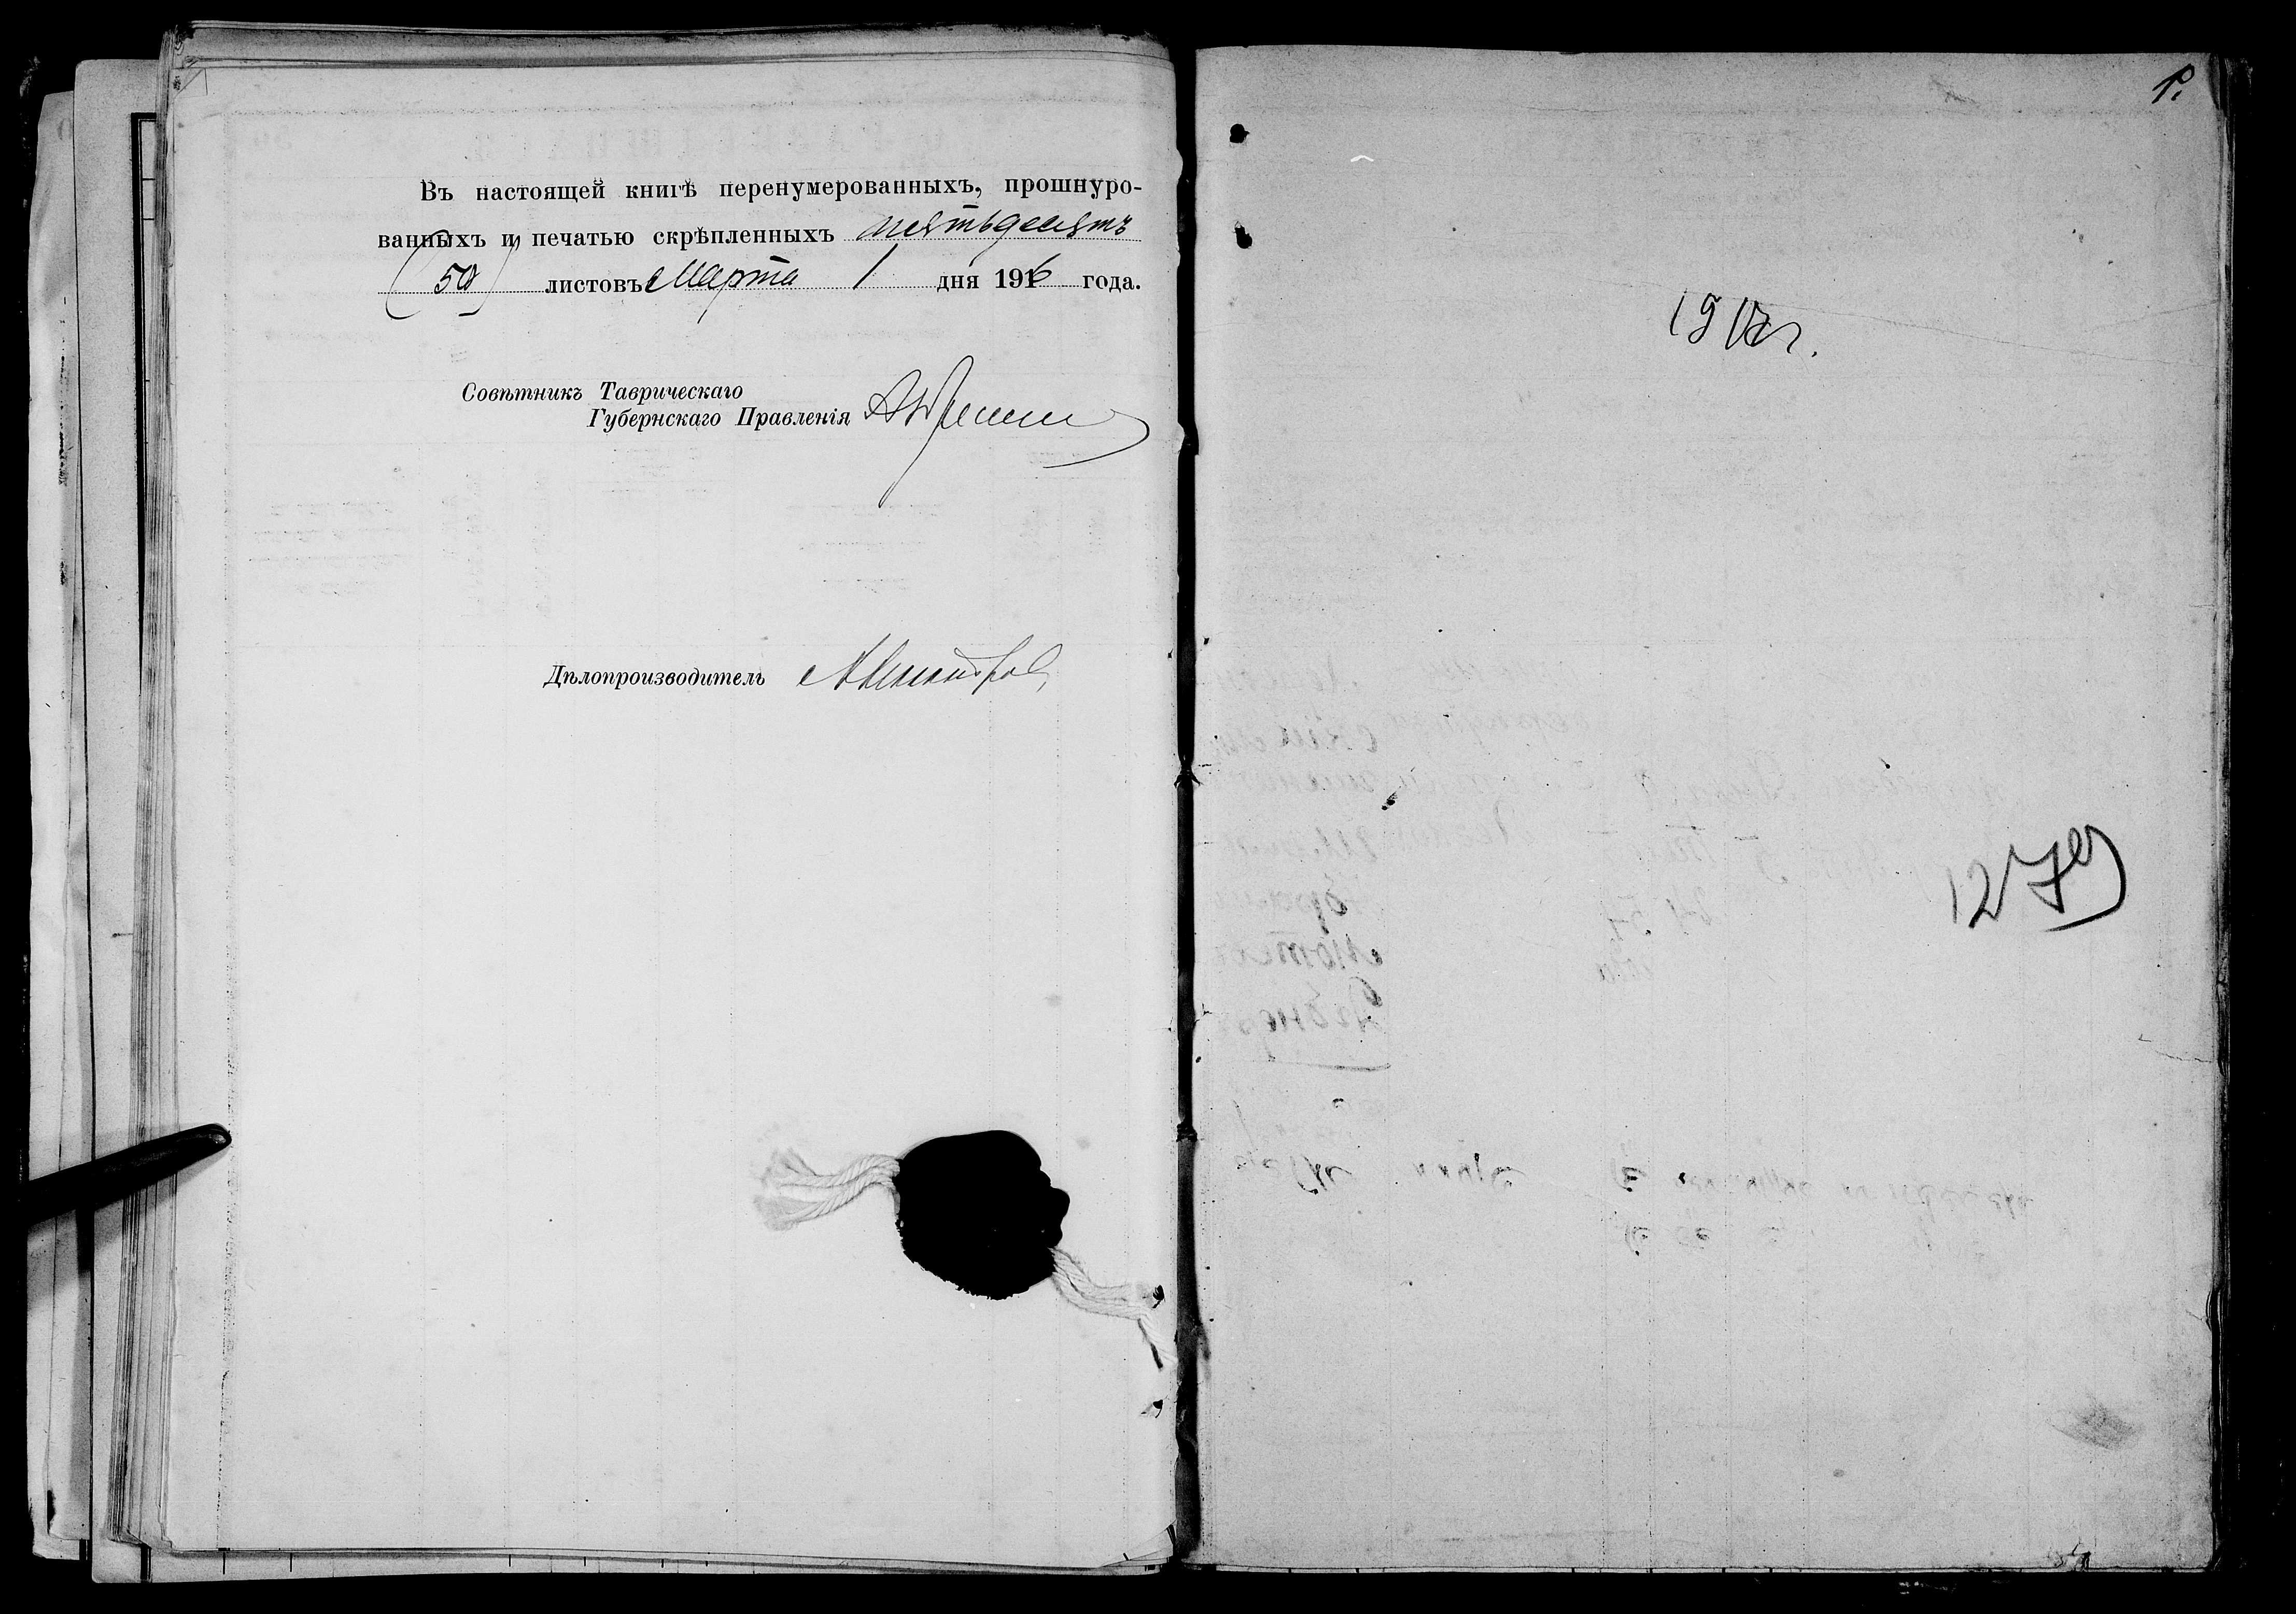 Въ настоящей книгѣ перенумерованныхъ, прошнуро-
ванныхъ и печатью скрѣпленныхъ пятьдесятъ
(50) листовъ Марта 1 дня 1916 года.
Совѣтникъ Таврическаго
Губернскаго Правленія
Дѣлопроизводитель
1.
1917г.
127